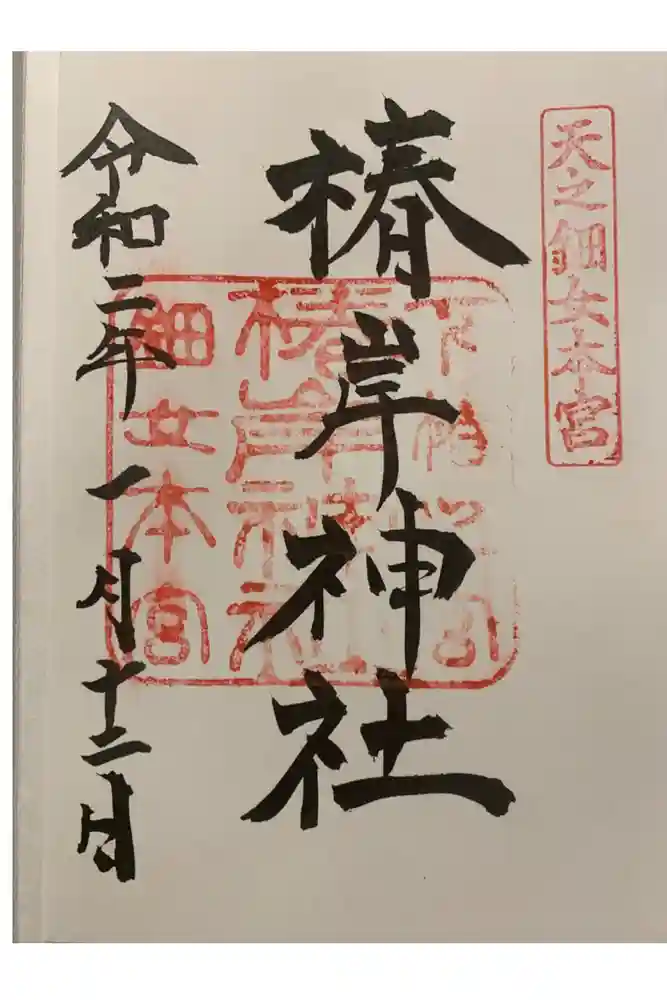 天之鈿女本宮
椿岸神社
下椿
椿岸神社
鈿女本宮
令和二年一月十二日